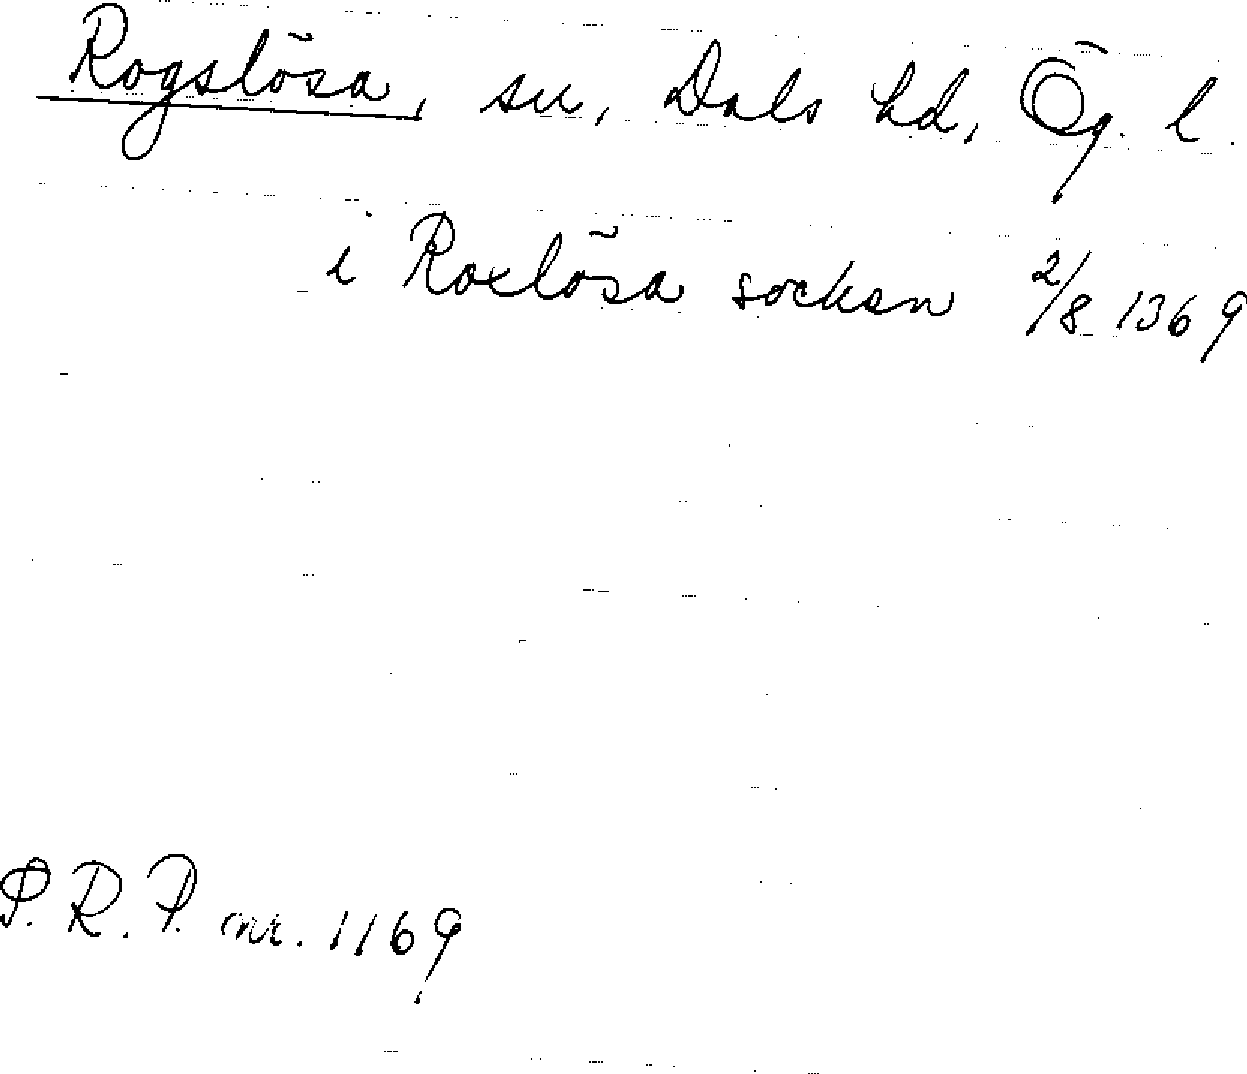 Rogslösa, sn, Dals hd, Ög. l.
i Roxlösa socken 2/8 1369
P. R. P. nr. 1169